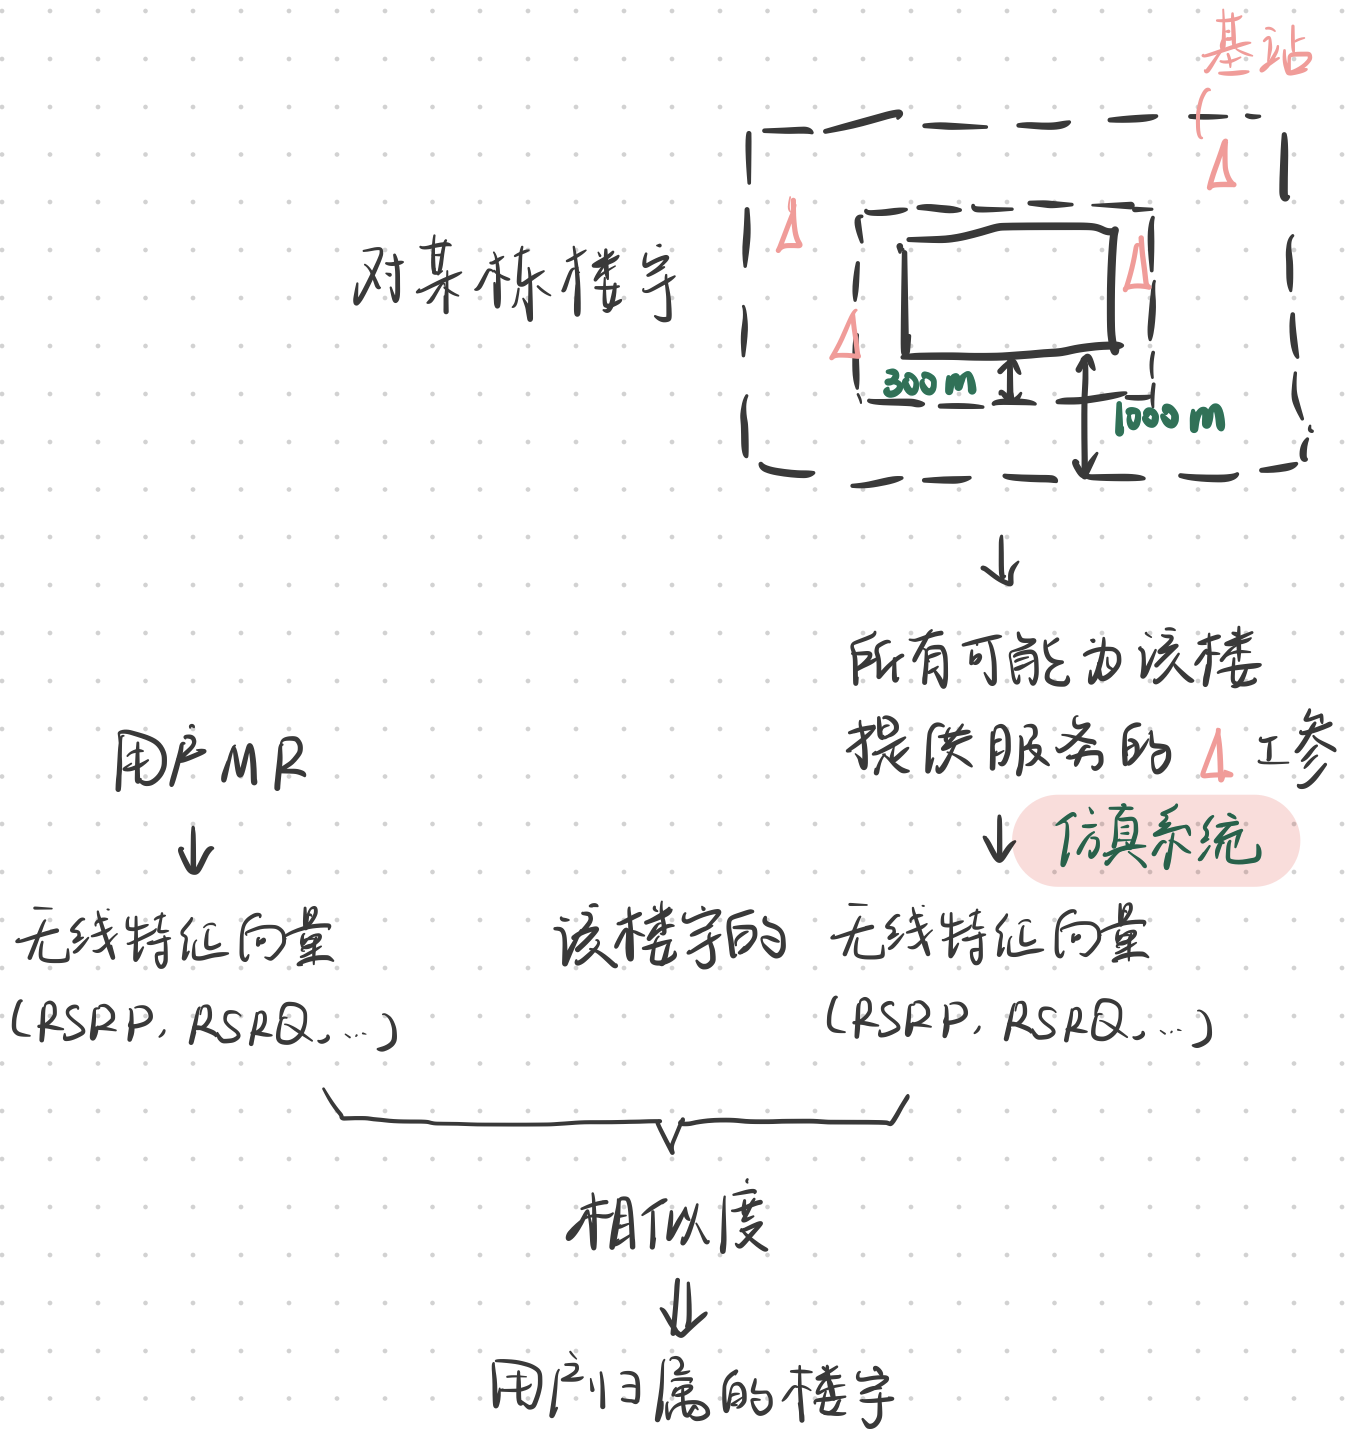 基站
对某栋楼宇
300m
1000m
所有可能为该楼
提供服务的 工参
仿真系统
用户MR
无线特征向量
(RSRP, RSRQ, ...)
该楼宇的 无线特征向量
(RSRP, RSRQ, ...)
相似度
用户归属的楼宇